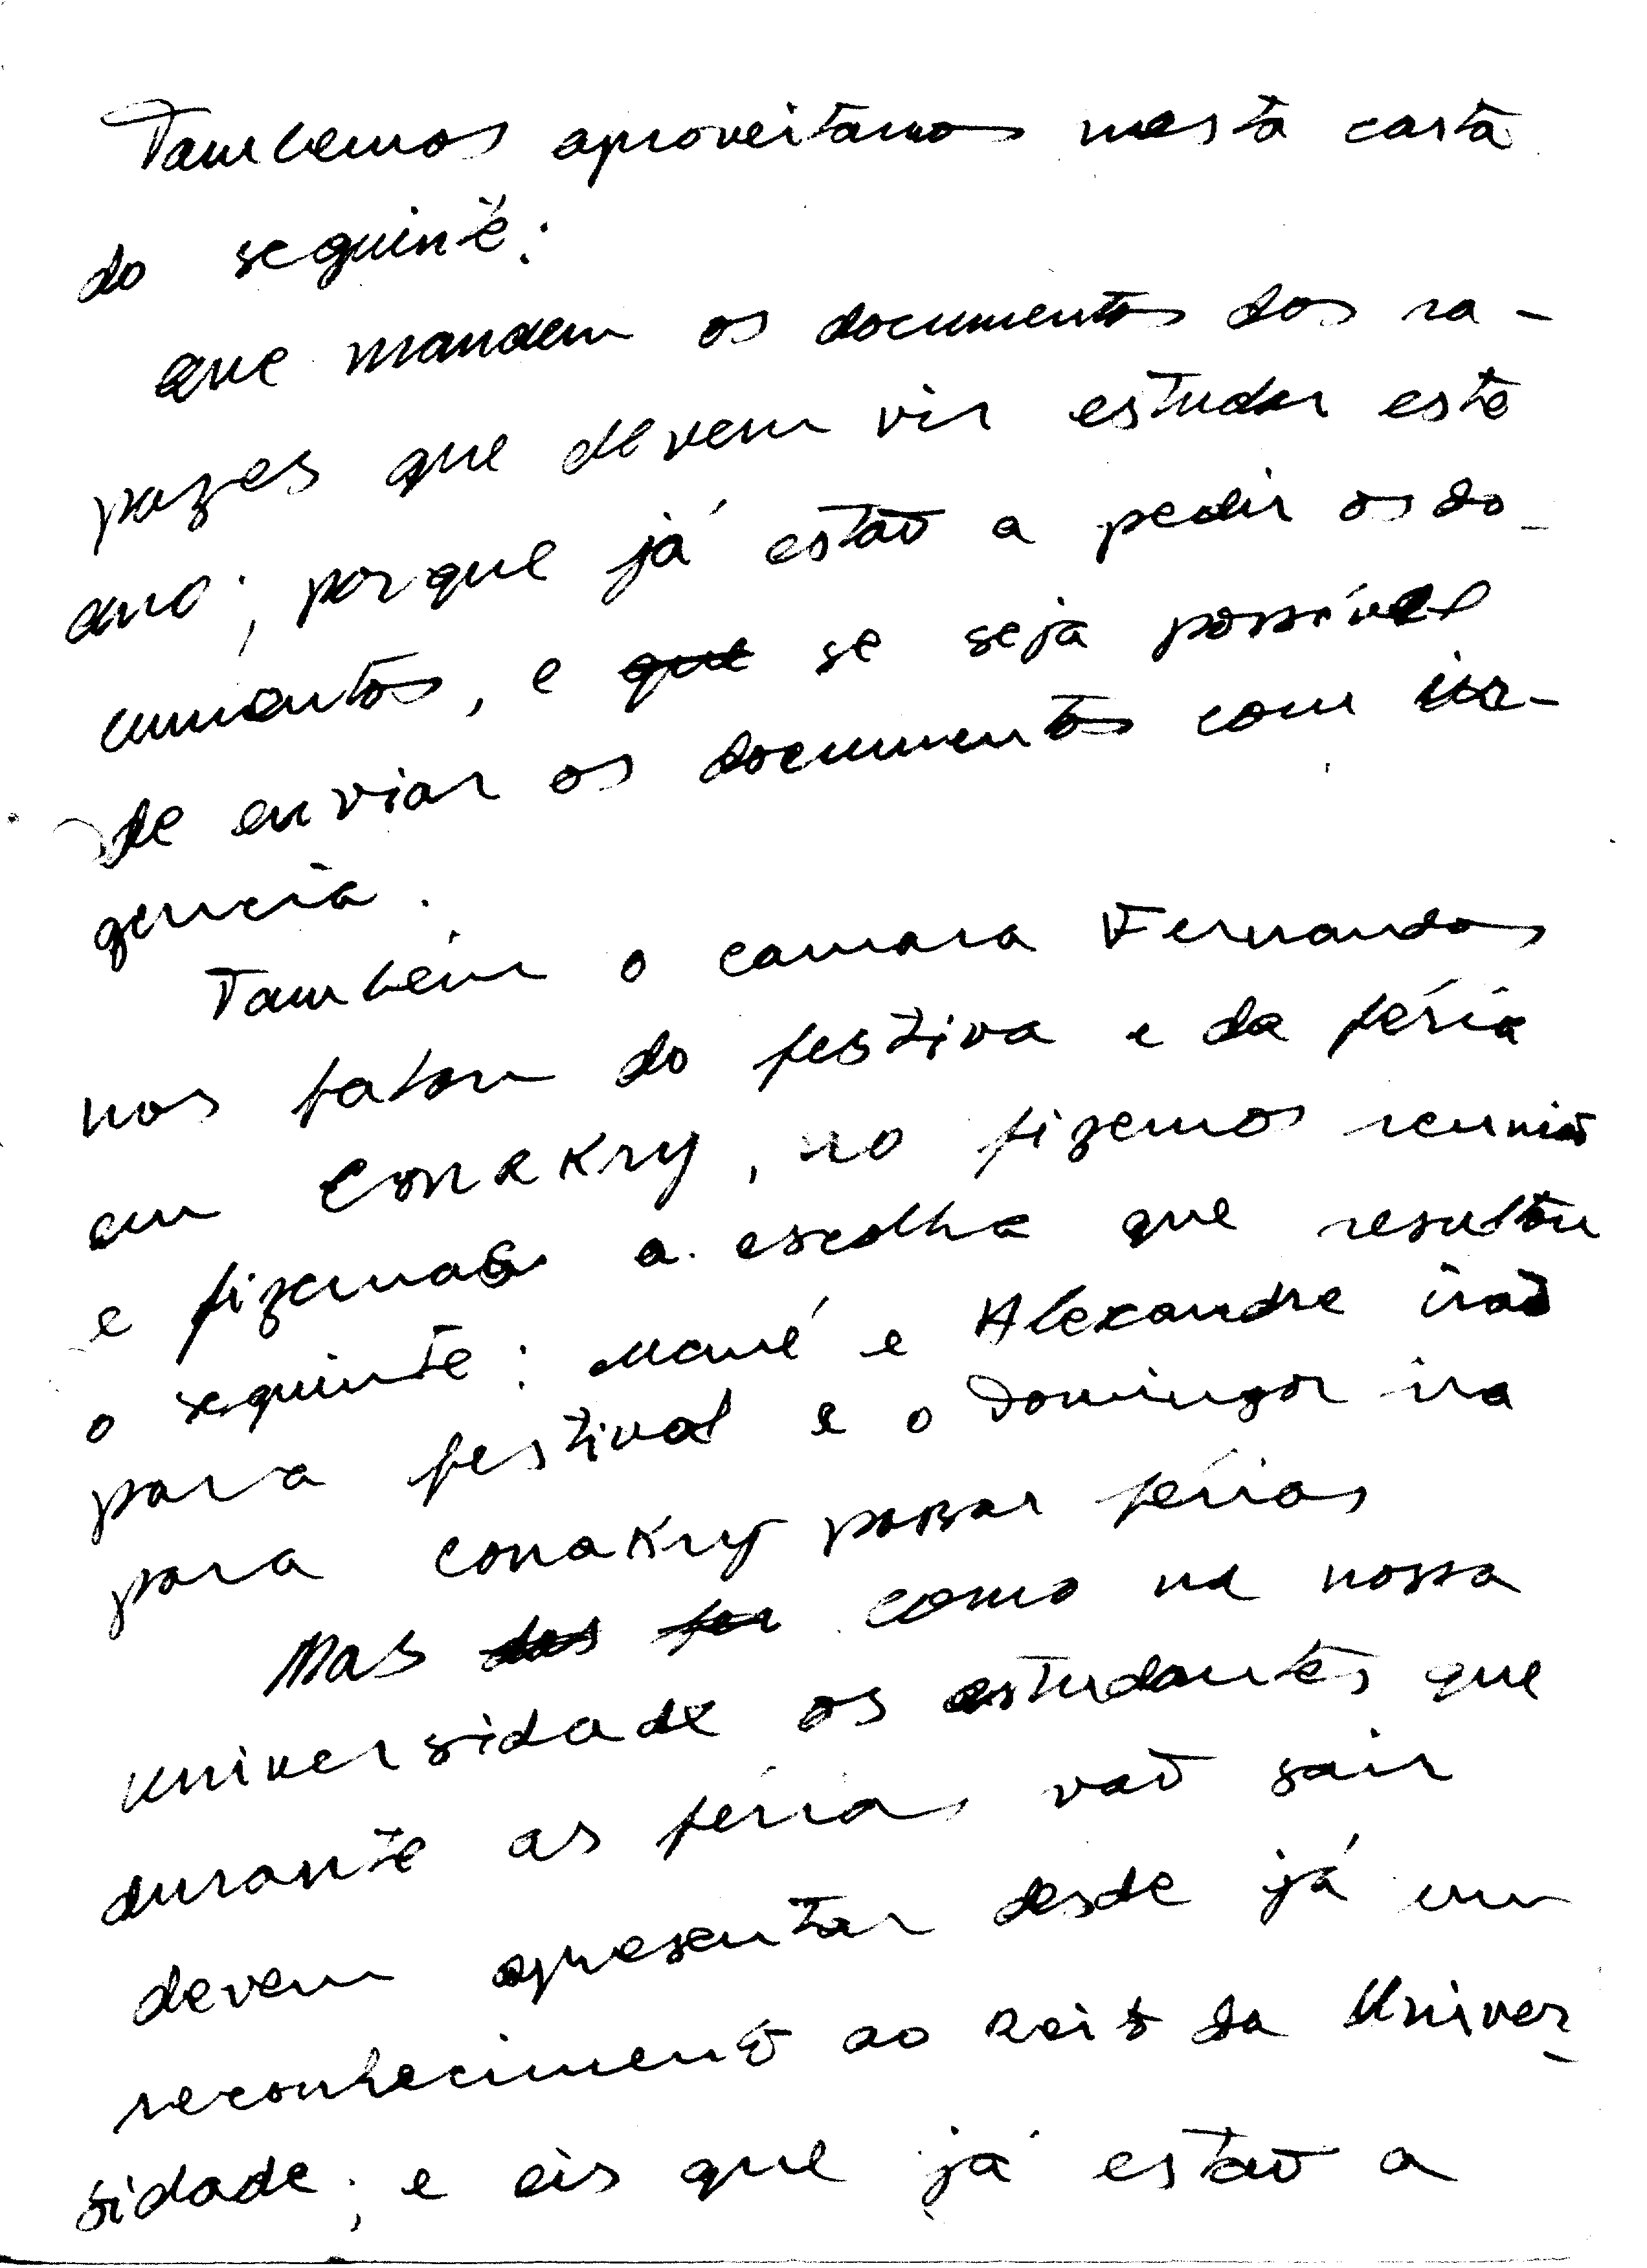 Tambemos aproveitamos nesta carta
do seguinte:
que mandem os documentos dos ra-
pazes que devem vir estudar este
ano; porque já estaõ a pedir os do-
cumentos, e que se seja possível
de enviar os documentos com ur-
gencia.
Também o camara Fernandos
nos falou do festiva e da féria
em Conakry, no fizemos reuniaõ
e fizemos a escolha que resultou
o seguinte: Mané e Alexandre iraõ
para festival e o Domingos ira
para Conakry passar férias
Mas das for como na nossa
Universidade os estudantes que
durante as férias vaõ sair
devem apresentar desde já um
reconhecimento ao Reit da Univer-
sidade; e eis que já estaõ a